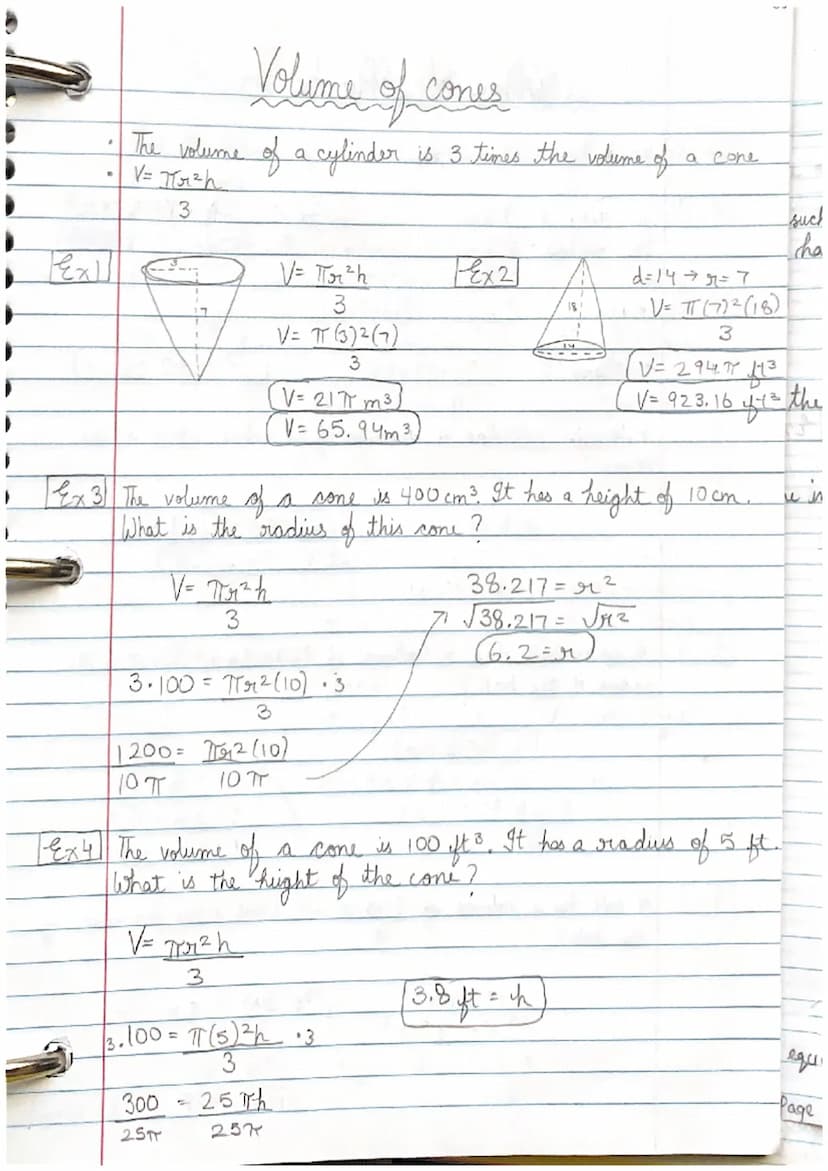 Volume of cones
• The volume of a cylinder is 3 times the volume of a cone
• V= πr²h
3
Ex1
3
7
V= πr²h
3
V= π(3)²(7)
3
V= 21π m³
V= 65.94m³
Ex2
18
14
d=14 → r= 7
V= π(7)²(18)
3
V= 294π ft³
V= 923.16 ft³
Ex3 The volume of a cone is 400cm³. It has a height of 10cm.
What is the radius of this cone?
V= πr²h
3
3•100 = πr²(10) •3
3
1200= πr²(10)
10π 10π
38.217=r²
√38.217= √r²
6.2=r
Ex4 The volume of a cone is 100 ft³. It has a radius of 5 ft.
What is the height of the cone?
V= πr²h
3
3.100= π(5)²h •3
3
300 = 25πh
25π 25π
3.8 ft = h
such
ha
the
equ
Page